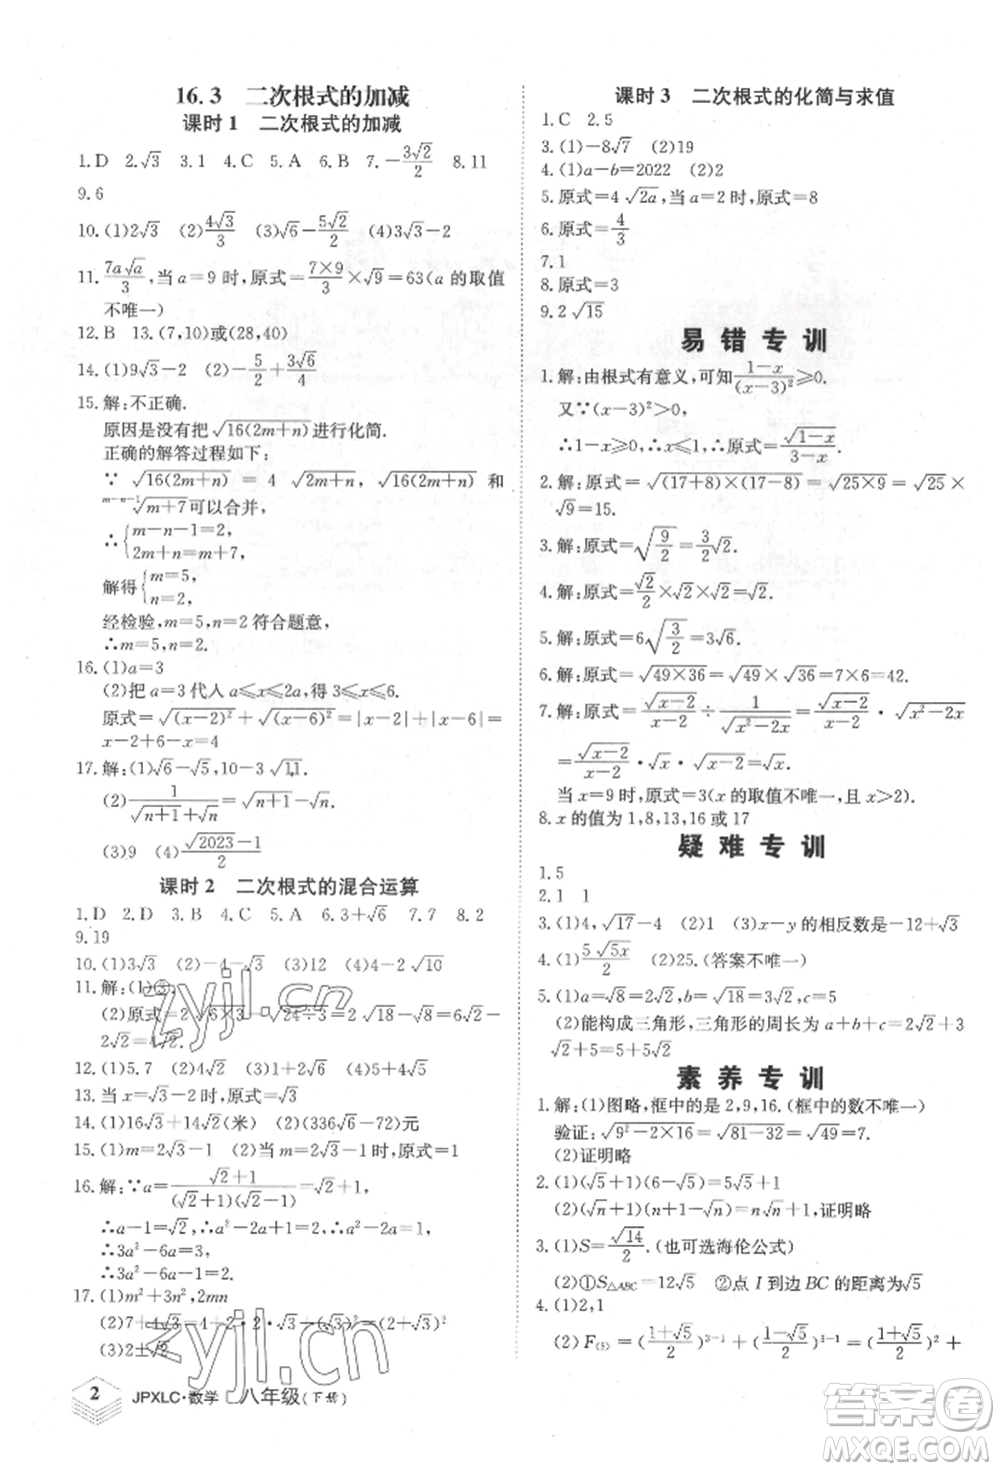 16.3 二次根式的加减
课时1 二次根式的加减
1.D 2.√3 3.1 4.C 5.A 6.B 7.-3√2/2 8.11
9.6
10.(1)2√3 (2)4√3/3 (3)√6-5√2/2 (4)3√3-2
11.7a√a/3,当 a=9 时,原式=7×9/3×√9=63(a 的取值
不唯一)
12.B 13.(7,10)或(28,40)
14.(1)9√3-2 (2)-5/2+3√6/4
15.解:不正确.
原因是没有把√16(2m+n)进行化简.
正确的解答过程如下:
∵ √16(2m+n) = 4 √2m+n 和
m-n-1√m+7可以合并,
∴{m-n-1=2, 2m+n=m+7.
解得{m=5, n=2.
经检验,m=5,n=2 符合题意,
∴m=5,n=2.
16.(1)a=3
(2)把 a=3 代入 a≤x≤2a,得 3≤x≤6.
原式=√(x-2)²+√(x-6)²=|x-2|+|x-6|
=x-2+6-x=4
17.解:(1)√6-√5,10-3√11.
(2)1/(√n+1+√n)=√n+1-√n
(3)9 (4)(√2023-1)/2
课时2 二次根式的混合运算
1.D 2.D 3.B 4.C 5.A 6.3+√6 7.7 8.2
9.19
10.(1)3√3 (2)-4√3 (3)-4 (4)2√10
11.解:(1)③
(2)原式=2√3-√24÷3=2√3-√8=2√3-
2√2
12.(1)5.7 (2)4√2 (3)2√6
13.当 x=√3 时,原式=√3
14.(1)16√3+14√2(米) (2)(336√6-72)元
15.(1)m=2√3-1 (2)当 m=2√3-1 时,原式=1
16.解:∵a=(√2+1)/((√2+1)(√2-1))=√2+1,
∴a-1=√2,∴a²-2a+1=2,∴a²-2a=1,
∴3a²-6a=3,
∴3a²-6a-1=2.
17.(1)m²+3n²,2mn
(2)7+4√3=4+2·2·√3+3=(2+√3)²
(3)2+√3
课时3 二次根式的化简与求值
1.C 2.5
3.(1)-8√7 (2)19
4.(1)a-b=2022 (2)2
5.原式=4√2a,当 a=2 时,原式=8
6.原式=4/3
7.1
8.原式=3
9.2√15
易错专训
1.解:由根式有意义,可知(1-x)/(x-3)²≥0.
又∵(x-3)²>0,
∴1-x≥0,∴x≤1,∴原式=√1-x/(3-x).
2.解:原式=√(17+8)×(17-8)=√25×9=√25×
√9=15.
3.解:原式=√(9/2)=3/√2=3√2/2.
4.解:原式=√2/2×√2×√2=√2.
5.解:原式=6√(3/2)=3√6.
6.解:原式=√49×36=√49×√36=7×6=42.
7.解:原式=√x-2/(x-2)÷1/√x²-2x=√x-2/(x-2)·√x²-2x
=√x-2/(x-2)·√x·√x-2=√x.
当 x=9 时,原式=3(x 的取值不唯一,且 x>2).
8.x 的值为 1,8,13,16 或 17
疑难专训
1.5
2.1 1
3.(1)4,√17-4 (2)1 (3)x-y 的相反数是-12+√3
4.(1)5√5x/2 (2)25.(答案不唯一)
5.(1)a=√8=2√2,b=√18=3√2,c=5
(2)能构成三角形,三角形的周长为 a+b+c=2√2+3
√2+5=5√2+5
素养专训
1.解:(1)图略,框中的是 2,9,16.(框中的数不唯一)
验证:√9²-2×16=√81-32=√49=7.
(2)证明略
2.(1)(√5+1)(6-√5)=5√5+1
(2)(√n+1)(n+1-√n)=n√n+1,证明略
3.(1)S=√14/2.(也可选海伦公式)
(2)①S△ABC=12√5 ②点 I 到边 BC 的距离为√5
4.(1)2,1
(2)F(5)=((1+√5)/2)³⁻¹+((1-√5)/2)³⁻¹=((1+√5)/2)²+
2 JPXLC·数学 八年级(下册)
zyjl.cn
zyjl.cn
答案卷
MXQE.COM